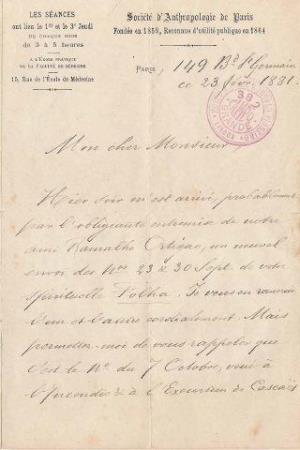 LES SÉANCES
ont lieu le 1er et le 3e Jeudi
DE CHAQUE MOIS
de 3 à 5 heures
A L'ÉCOLE PRATIQUE
DE LA FACULTÉ DE MÉDECINE
15, Rue de l'École de Médecine
Société d'Anthropologie de Paris
Fondée en 1859, Reconnue d'utilité publique en 1864
Paris, 149 Bd St Germain
ce 23 févr. 1881.
Mon cher Monsieur,
Hier soir m'est arrivé, probablement
par l'obligeante entremise de notre
ami Ramalho Ortigao, un nouvel
envoi des Nos 23 & 30 Sept. de votre
spirituelle Folha. Je vous en remercie
l'un et l'autre cordialement. Mais
permettez-moi de vous rappeler que
c'est le No. du 7 Octobre, voué à
l'Incendie & à l'Excursion de Cascaës